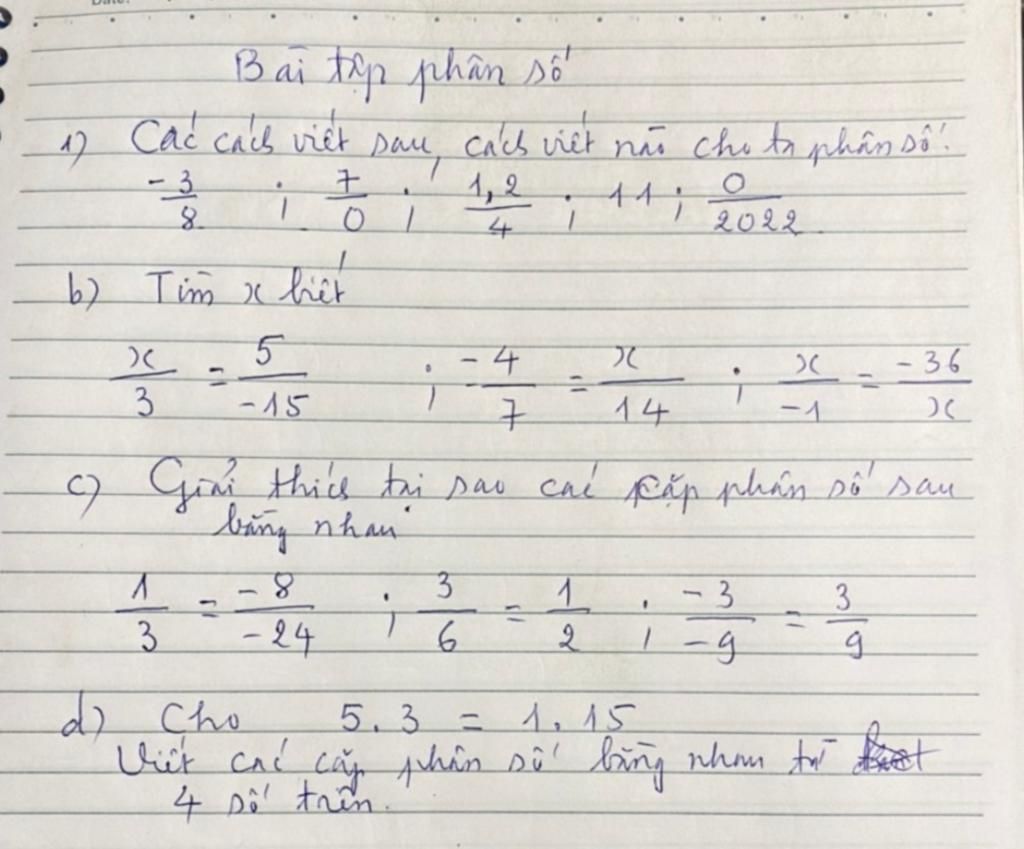 Bài tập phân số
1) Các cách viết sau, cách viết nào cho ta phân số:
-3/8 ; 7/0 ; 1,2/4 ; 11 ; 0/2022
b) Tìm x biết
x/3 = 5/-15 ; -4/7 = x/14 ; x/-1 = -36/x
c) Giải thích tại sao các cặp phân số sau
bằng nhau
1/3 = -8/-24 ; 3/6 = 1/2 ; -3/-9 = 3/9
d) Cho 5.3 = 1.15
Viết các cặp phân số bằng nhau từ
4 số trên.